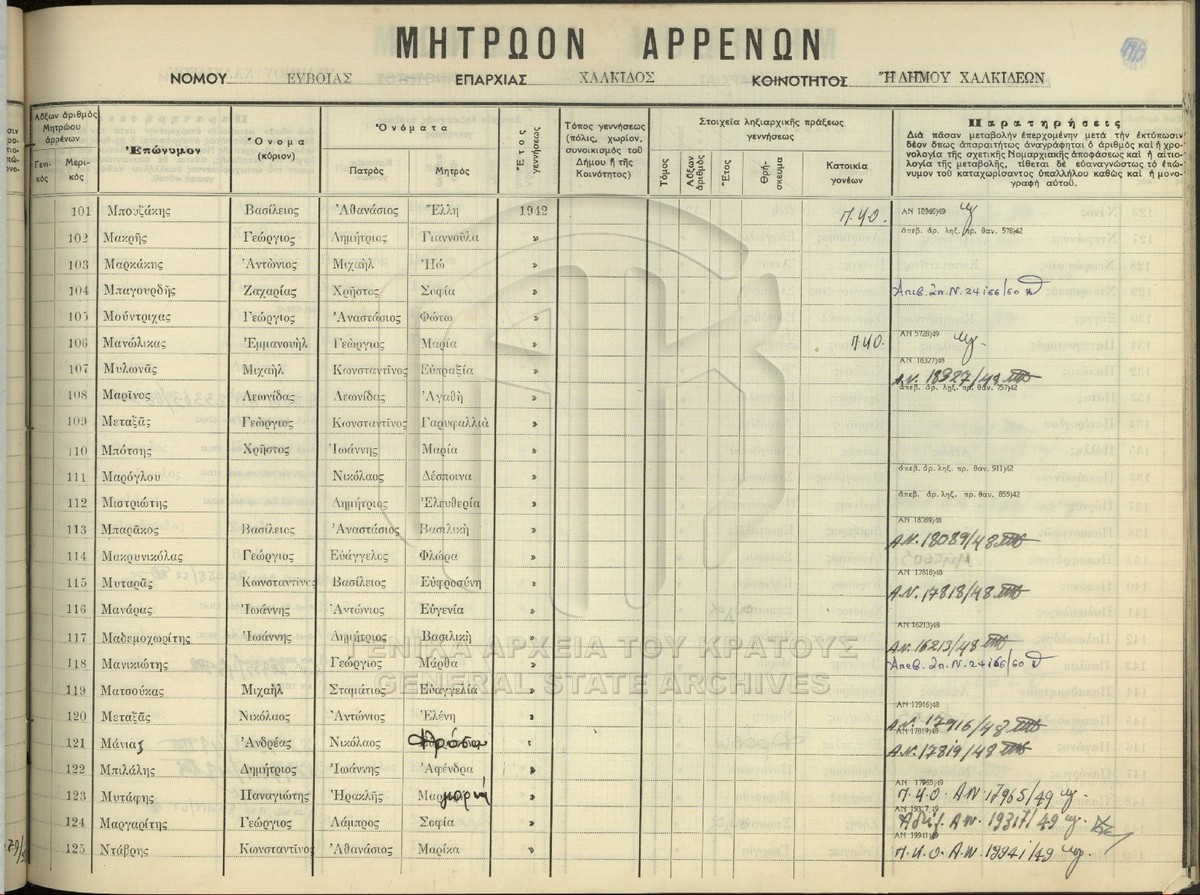 ΜΗΤΡΩΟΝ ΑΡΡΕΝΩΝ
ΝΟΜΟΥ ΕΥΒΟΙΑΣ ΕΠΑΡΧΙΑΣ ΧΑΛΚΙΔΟΣ ΚΟΙΝΟΤΗΤΟΣ Ἢ ΔΗΜΟΥ ΧΑΛΚΙΔΕΩΝ
Αὔξων ἀριθμὸς Μητρώου ἀρρένων
Γενικὸς Μερικὸς
Ἐπώνυμον
Ὄνομα (κύριον)
Ὀνόματα
Πατρὸς Μητρὸς
Ἔτος γεννήσεως
Τόπος γεννήσεως (πόλις, χωρίον, συνοικισμὸς τοῦ Δήμου ἢ τῆς Κοινότητος)
Στοιχεῖα ληξιαρχικῆς πράξεως γεννήσεως
Τόμος Αὔξων ἀριθμὸς Ἔτος Θρήσκευμα Κατοικία γονέων
Παρατηρήσεις
Διὰ πᾶσαν μεταβολὴν ἐπερχομένην μετὰ τὴν ἐκτύπωσιν δέον ὅπως ἀπαραιτήτως ἀναγράφηται ὁ ἀριθμὸς καὶ ἡ χρονολογία τῆς σχετικῆς Νομαρχιακῆς ἀποφάσεως καὶ ἡ αἰτιολογία τῆς μεταβολῆς, τίθεται δὲ εὐαναγνώστως τὸ ἐπώνυμον τοῦ καταχωρίσαντος ὑπαλλήλου καθὼς καὶ ἡ μονογραφὴ αὐτοῦ.
101 Μπουζάκης Βασίλειος Ἀθανάσιος Ἕλλη 1942 Π.Ψ.Ο. ΑΝ 18946)49
102 Μακρῆς Γεώργιος Δημήτριος Γιαννούλα » ἀπεβ. ἀρ. ληξ. πρ. θαν. 578)42
103 Μαρκάκης Ἀντώνιος Μιχαὴλ Ἠώ »
104 Μπαγουρδῆς Ζαχαρίας Χρῆστος Σοφία » Ἀπεβ. Λπ. Ν. 24166/60
105 Μούντριχας Γεώργιος Ἀναστάσιος Φώτω »
106 Μανώλικας Ἐμμανουὴλ Γεώργιος Μαρία » Π.Ψ.Ο. ΑΝ 5728)49
107 Μυλωνᾶς Μιχαὴλ Κωνσταντῖνος Εὐπραξία » ΑΝ 18327)48 Α.Ν. 18327/48
108 Μαρῖνος Λεωνίδας Λεωνίδας Ἀγαθὴ » ἀπεβ. ἀρ. ληξ. πρ. θαν. 757)42
109 Μεταξᾶς Γεώργιος Κωνσταντῖνος Γαρυφαλλιὰ »
110 Μπότσης Χρῆστος Ἰωάννης Μαρία »
111 Μαρόγλου Νικόλαος Δέσποινα » ἀπεβ. ἀρ. ληξ. πρ. θαν. 911)42
112 Μιστριώτης Δημήτριος Ἐλευθερία » ἀπεβ. ἀρ. ληξ. πρ. θαν. 855)42
113 Μπαρᾶκος Βασίλειος Ἀναστάσιος Βασιλικὴ » ΑΝ 18089)48 Α.Ν. 18089/48
114 Μακρυνικόλας Γεώργιος Εὐάγγελος Φλώρα »
115 Μυταρᾶς Κωνσταντῖνος Βασίλειος Εὐφροσύνη » ΑΝ 17818)48 Α.Ν. 17818/48
116 Μανάρας Ἰωάννης Ἀντώνιος Εὐγενία »
117 Μαδεμοχωρίτης Ἰωάννης Δημήτριος Βασιλικὴ » ΑΝ 16213)48 Αν 16213/48
118 Μανικιώτης Γεώργιος Μάρθα » Ἀπεβ. Λπ. Ν. 24166/60
119 Ματσούκας Μιχαὴλ Σταμάτιος Εὐαγγελία »
120 Μεταξᾶς Νικόλαος Ἀντώνιος Ἑλένη » ΑΝ 17916)48 Α.Ν. 17916/48
121 Μάνιας Ἀνδρέας Νικόλαος » ΑΝ 17819)48 Α.Ν. 17819/48
122 Μπιλάλης Δημήτριος Ἰωάννης Ἀφένδρα »
123 Μυτάφης Παναγιώτης Ἡρακλῆς » ΑΝ 17965)49 Π.Ψ.Ο. Α.Ν. 17965/49
124 Μαργαρίτης Γεώργιος Λάμπρος Σοφία » ΑΝ 19317)49 Α.Ν. 19317/49
125 Ντάβρης Κωνσταντῖνος Ἀθανάσιος Μαρίκα » ΑΝ 19941)49 Π.Ψ.Ο. Α.Ν. 19941/49
ΓΕΝΙΚΑ ΑΡΧΕΙΑ ΤΟΥ ΚΡΑΤΟΥΣ
GENERAL STATE ARCHIVES